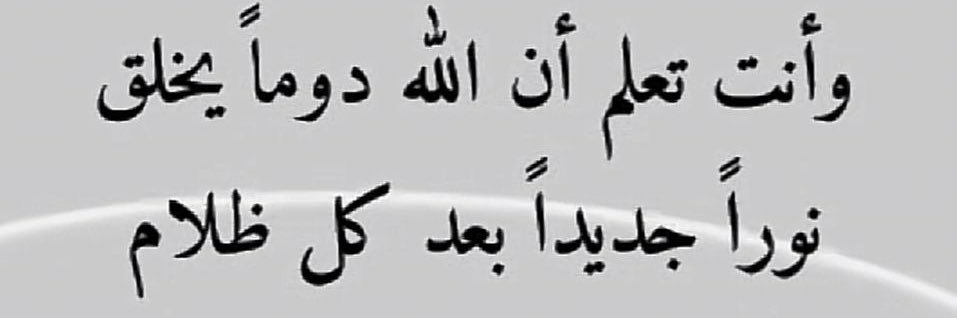 وأنت تعلم أن الله دوماً يخلق
نوراً جديداً بعد كل ظلام